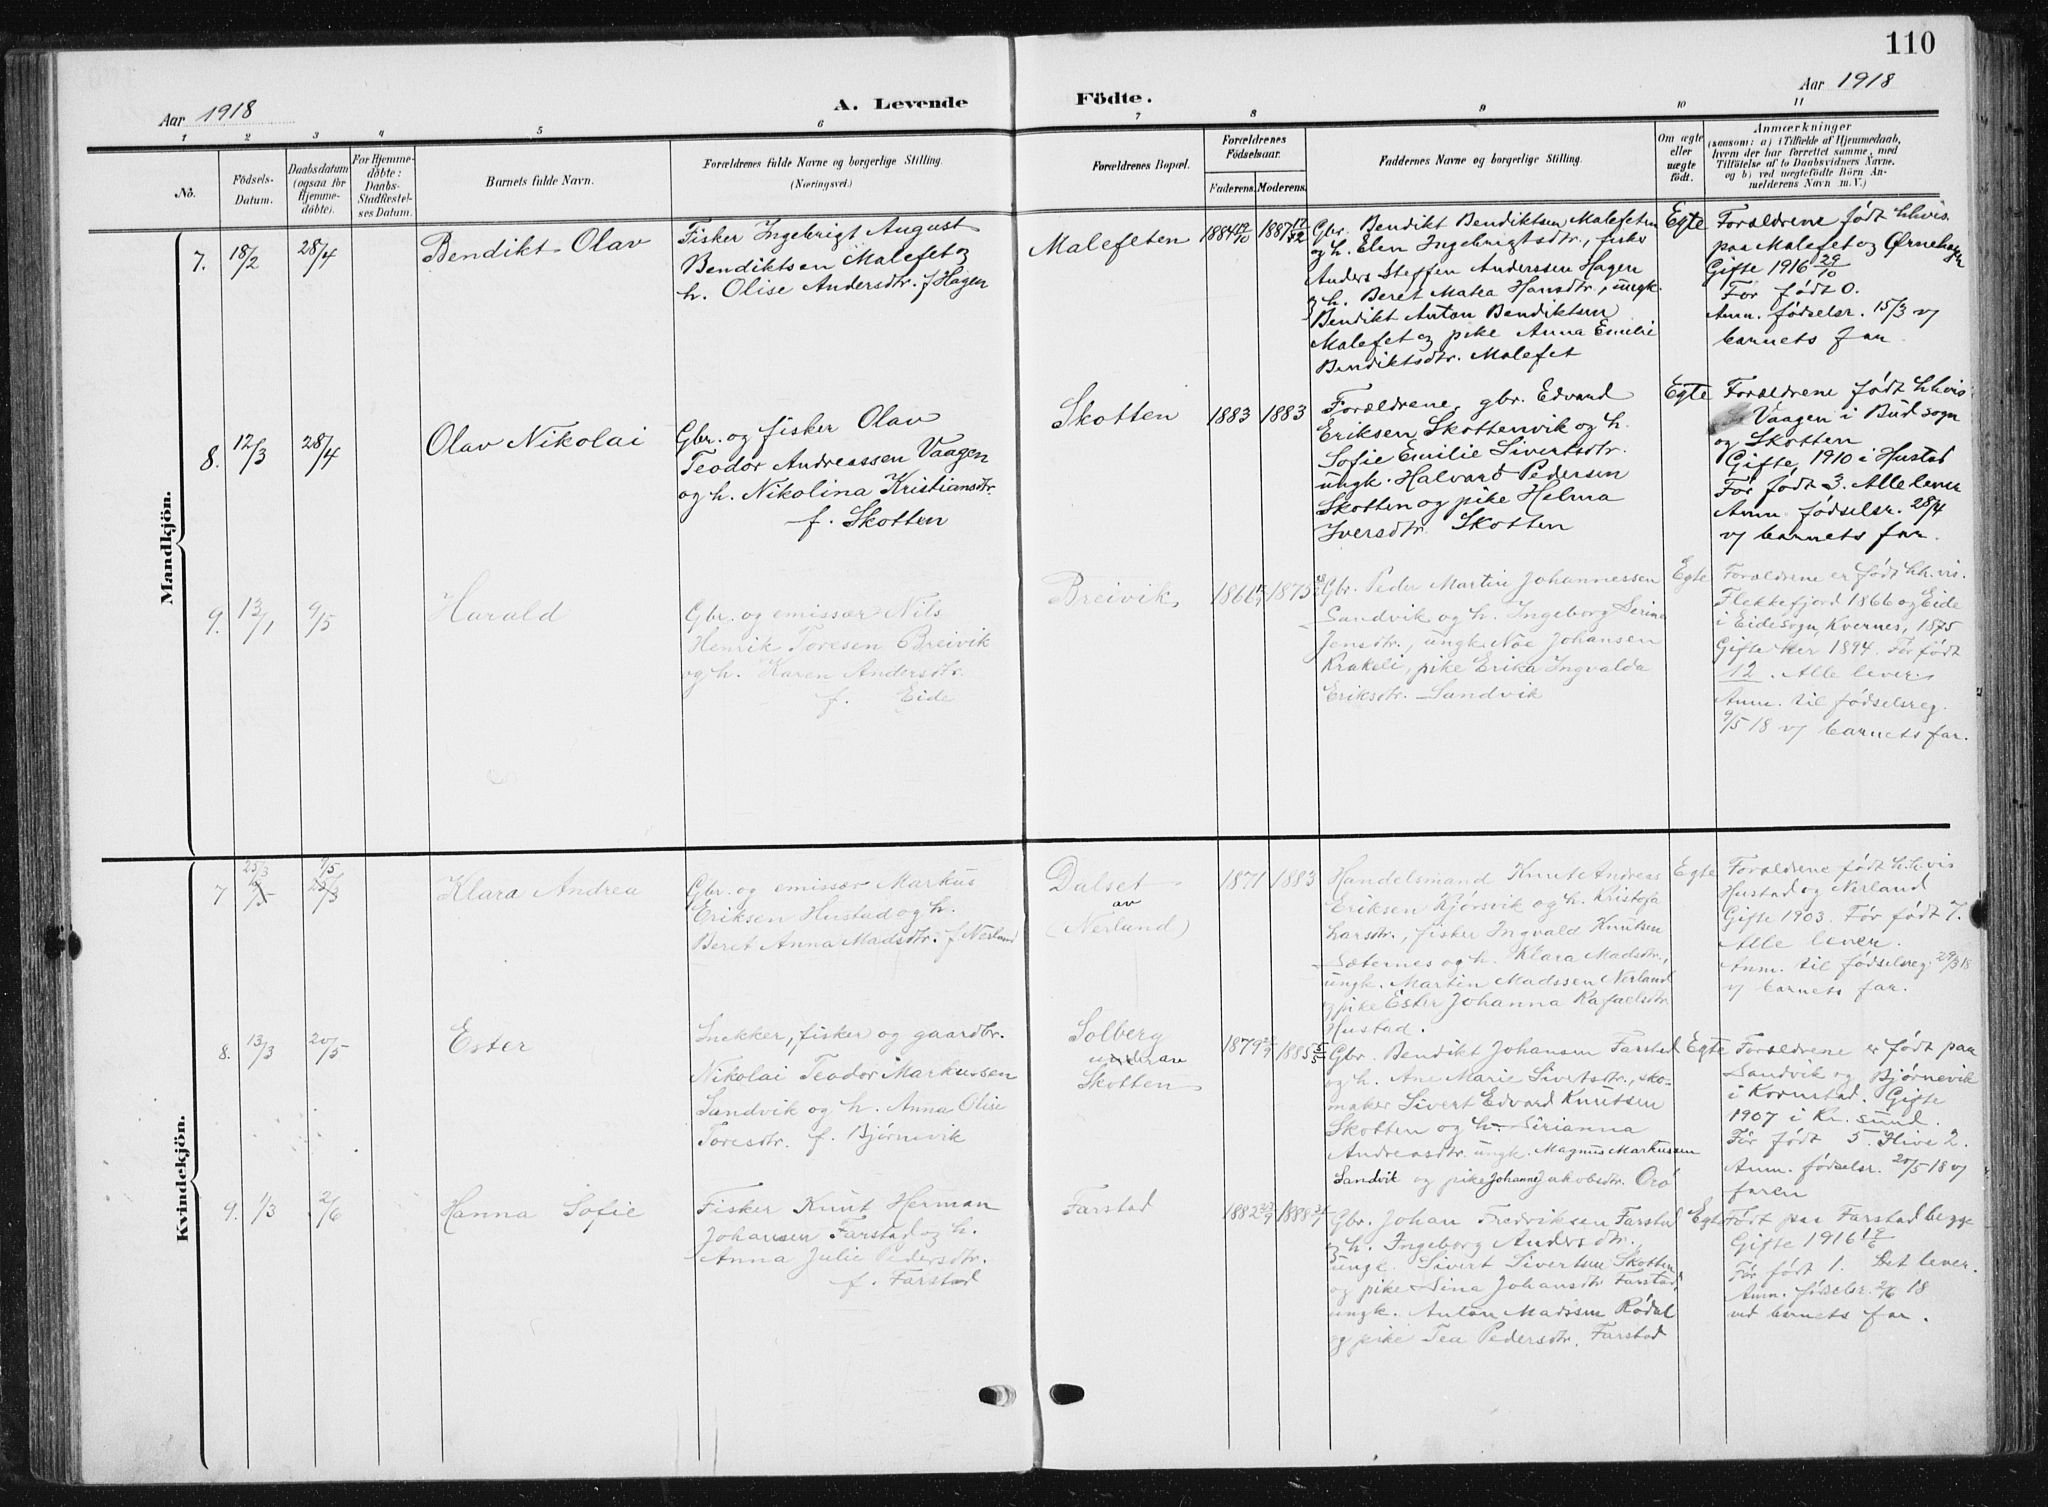 110
Aar 1918
A. Levende
Födte.
Aar 1918
1 2 3 4 5 6 7 8 9 10 11
No.
Födsels-
Datum.
Daabsdatum
(ogsaa for
Hjemme-
döbte).
For Hjemme-
döbte:
Daabs-
Stadfæstel-
ses Datum.
Barnets fulde Navn.
Forældrenes fulde Navne og borgerlige Stilling.
(Næringsvei.)
Forældrenes Bopæl.
Forældrenes
Födselsaar.
Faderens. Moderens.
Faddernes Navne og borgerlige Stilling.
Om ægte
eller
uægte
födt.
Anmærkninger
(saasom: a) i Tilfælde af Hjemmedaab,
hvem der har forrettet samme, med
Tilföielse af to Daabsvidners Navne.
og b) ved uægtefödte Börn An-
melderens Navn m. V.)
Mandkjön.
7. 18/2 28/4 Bendikt Olav
Fisker Ingebrigt August
Bendiktsen Malefet og
h. Olise Andersdtr. f Hagen
Malefeten
1884 1887
Gbr. Bendikt Bendiktsen Malefeten
og h. Elen Ingebrigtsdtr., fisker
Anders Steffen Anderssen Hagen
og h. Beret Matea Hansdtr., ungk.
Bendikt Anton Bendiktsen
Malefet og pike Anna Emilie
Bendiktsdtr. Malefet
Egte
Forældrene født hhvis.
paa Malefet og Ørnehagen
Gifte 1916 29/10
Før født 0.
Anm. fødselsr. 15/3 v/
barnets far.
8. 12/3 28/4 Olav Nikolai
Gbr. og fisker Olav
Teodor Andreassen Vaagen
og h. Nikolina Kristiansdtr.
f. Skotten
Skotten
1883 1883
Forældrene, gbr. Edvard
Eriksen Skottenvik og h.
Sofie Emilie Sivertsdtr.
ungk. Halvard Pedersen
Skotten og pike Helma
Iversdtr. Skotten
Egte
Forældrene født hhvis
Vaagen i Bud sogn
og Skotten
Gifte 1910 i Hustad
Før født 3. Alle lever
Anm. fødselsr. 28/4
v/ barnets far.
9. 13/1 9/5 Harald
Gbr. og emissær Nils
Henrik Toresen Breivik
og h. Karen Andersdtr.
f. Eide
Breivik
1866 1875
Gbr. Peder Martin Johannessen
Sandvik og h. Ingeborg Serina
Jensdtr., ungk. Noe Johansen
Krakeli, pike Erika Ingvalda
Eriksdtr. Sandvik
Egte
Forældrene er født hh.vis.
Flekkefjord 1866 og Eide
i Eide sogn, Kvernes, 1875
Gifte her 1894. Før født
12. Alle lever.
Anm. til fødselsreg.
9/5 18 v/ barnets far.
Kvindekjön.
7 25/3 9/5
25/3
Klara Andrea
Gbr. og emissær Markus
Eriksen Hustad og h.
Beret Anna Madsdtr. f Nerland
Dalset
av
(Nerlund)
1871 1883
Handelsmand Knut Andreas
Eriksen Kjørsvik og h. Kristofa
Larsdtr., fisker Ingvald Knutsen
Sæternes og h. Klara Madsdtr.,
ungk. Martin Madssen Nerland
og pike Ester Johanna Rafaelsdtr.
Hustad.
Egte
Forældrene født h.hvis
Hustad og Nerland
Gifte 1903. Før født 7.
Alle lever.
Anm. til fødselsreg. 29/3 18
v/ barnets far.
8. 13/3 20/5 Ester
Snekker, fisker og gaardbr.
Nikolai Teodor Markussen
Sandvik og h. Anna Olise
Toresdtr. f. Bjørnevik
Solberg
Skotten
1879 1885
Gbr. Bendikt Johansen Farstad
og h. Ane Marie Sivertsdtr., sko-
maker Sivert Edvard Knutsen
Skotten og h. Sirianna
Andreasdtr. ungk. Magnus Markussen
Sandvik og pike Johanne Jakobsdtr. Orö
Egte
Forældrene er født paa
Sandvik og Bjørnevik
i Kornstad. Gifte
1907 i Kr. sund.
Før født 5. I live 2.
Anm. fødselsr. 20/5 18 v/
faren
9. 1/3 2/6 Hanna Sofie
Fisker Knut Herman
Johansen Farstad og h.
Anna Julie Pedersdtr.
f. Farstad
Farstad
1882 1888
Gbr. Johan Fredriksen Farstad
og h. Ingeborg Andersdtr.,
ungk. Sivert Sivertsen Skotten
og pike Sina Johansdtr Farstad,
ungk. Anton Madssen Rødal
og pike Tea Pedersdtr. Farstad
Egte
Født paa Farstad begge
Gifte 1916
Før født 1. Det lever.
Anm. fødselsr. 2/6 18
ved barnets far.